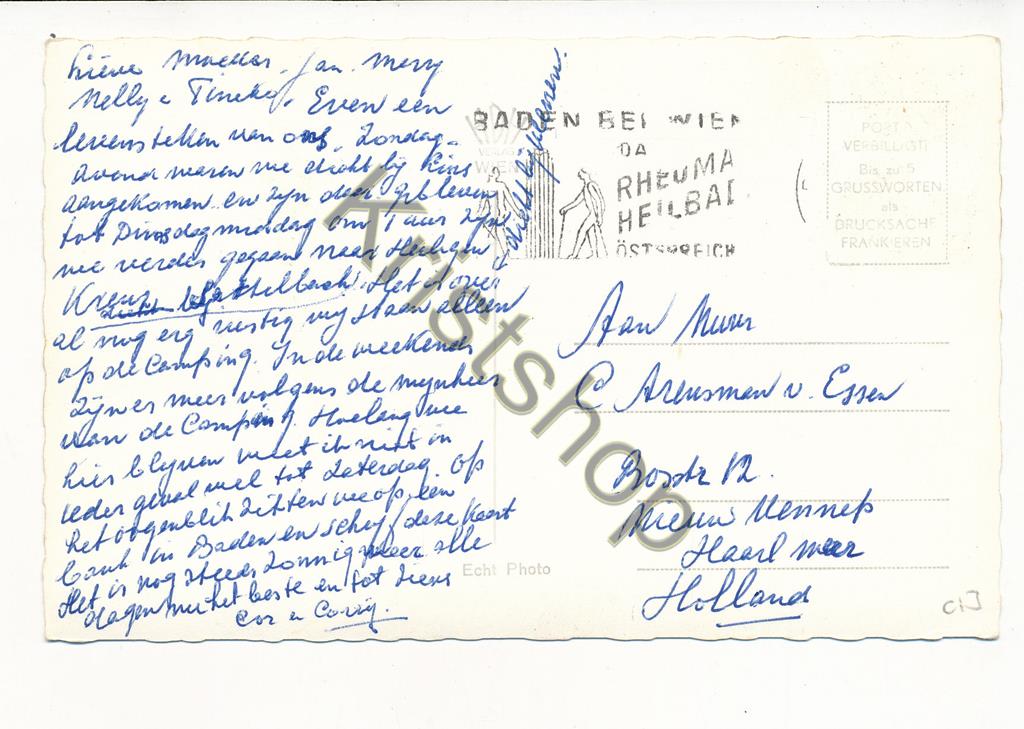 Lieve Moeder, Jan, Merry
Nelly & Tineke. Even een
levensteken van ons. Zondag-
avond waren we dicht bij Lins
aangekomen en zijn daar gebleven
tot Dinsdagmiddag om 1 uur zijn
we verder gegaan naar Heiligen
Kreuz Sattelbach. Het is over
al nog erg rustig wij staan alleen
op de Camping. In de weekends
zijn er meer volgens de mijnheer
van de Camping. Hoelang we
hier blijven weet ik niet in
ieder geval wel tot Zaterdag. Op
het oogenblik zitten we op een
bank in Baden en schrijf deze kaart
Het is nog steeds zonnig weer alle
dagen met het beste en tot ziens
Cor en Corry.
dicht bij Wenen.
BADEN BEI WIEN
DA
RHEUMA
HEILBAD
ÖSTERREICH
VERLAG
WIEN
PORTO
VERBILLIGT!
Bis zu 5
GRUSSWORTEN
als
DRUCKSACHE
FRANKIEREN
Aan Mevr
C Arensman v. Essen
Bosstr 12.
Nieuw Vennep
Haarl meer
Holland
Echt Photo
Kristshop